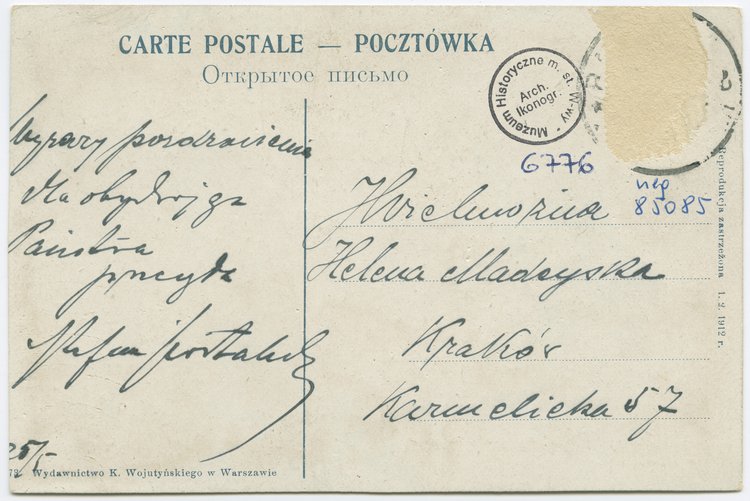 CARTE POSTALE — POCZTÓWKA
Открытое письмо
Muzeum Historyczne m. st. W-wy
Arch.
Ikonogr.
6776
neg
85085
Reprodukcja zastrzeżona 1. 2. 1912 r.
Wyrazy pozdrowienia
dla obydwojga
Państwa
przesyła
Stefan
25/
Jwielmożna
Helena Madeyska
Kraków
Karmelicka 57
73. Wydawnictwo K. Wojutyńskiego w Warszawie